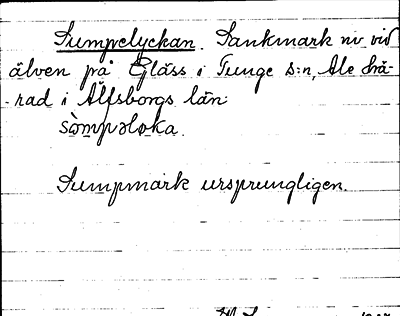 Sumpelyckan. Sankmark nv vid
älven på Gläss i Tunge s:n, Ale hä-
-rad i Älfsborgs län
sòmpəloka.
Sumpmark ursprungligen.